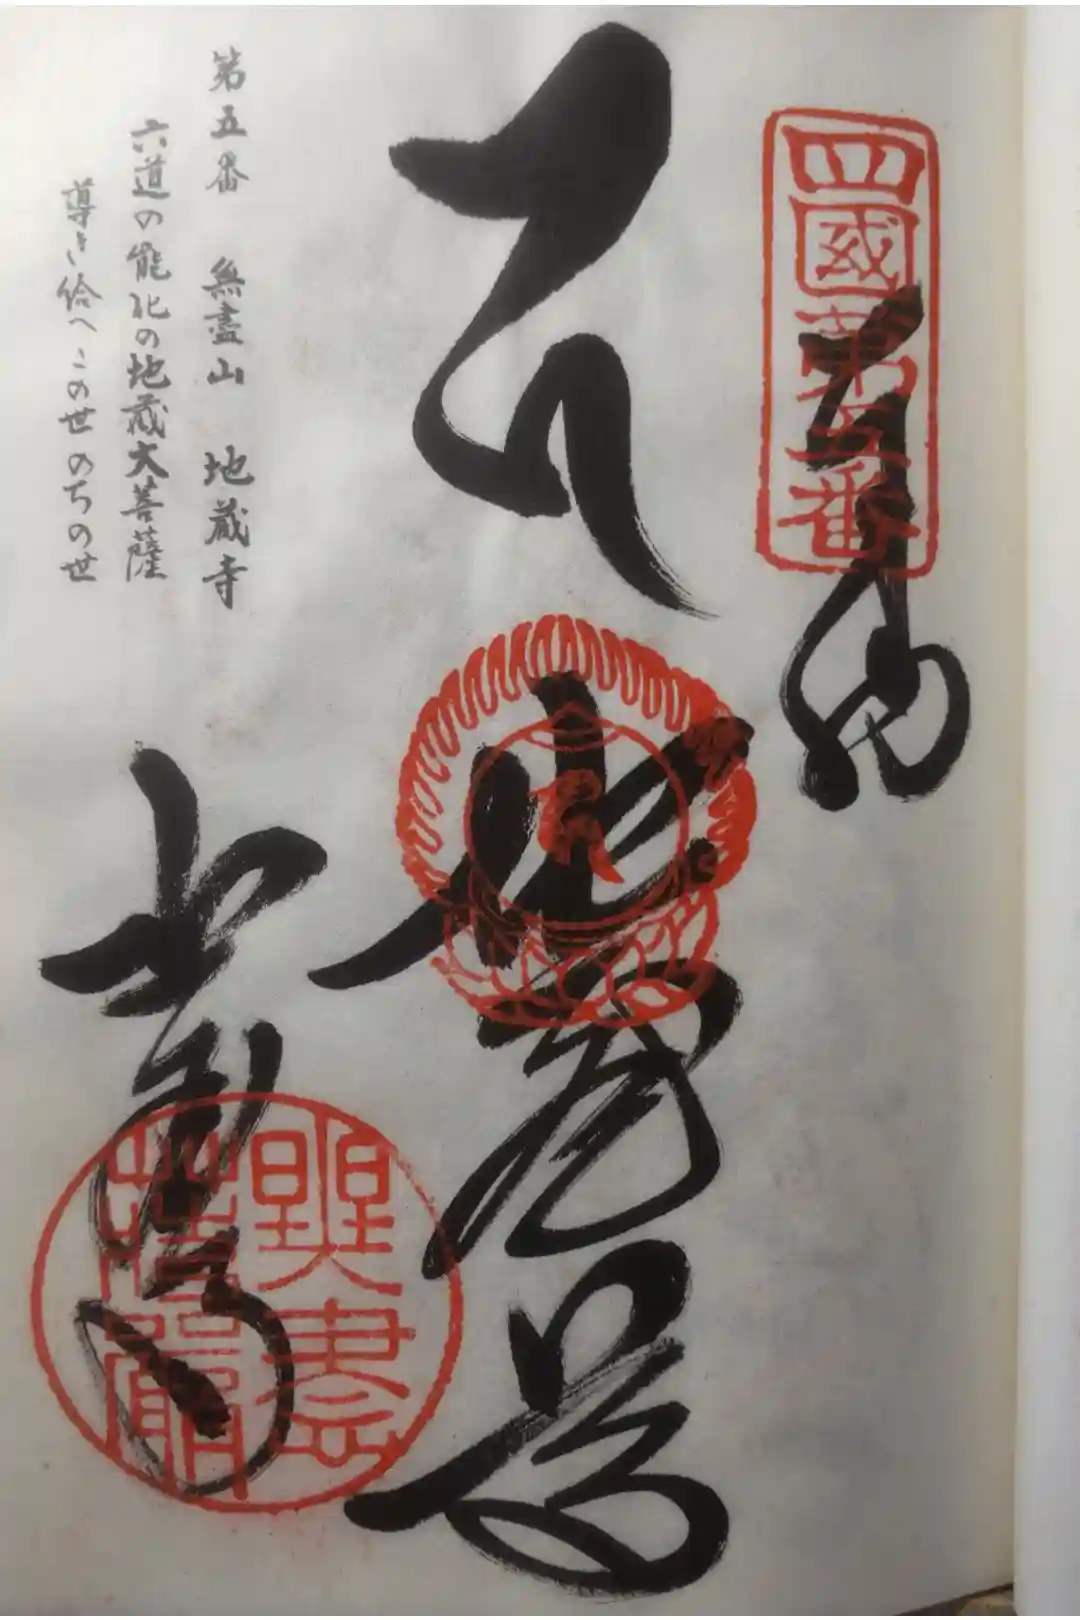 四國第五番
奉納
地蔵尊
第五番　無盡山　地蔵寺
六道の能化の地蔵大菩薩
導き給へこの世のちの世